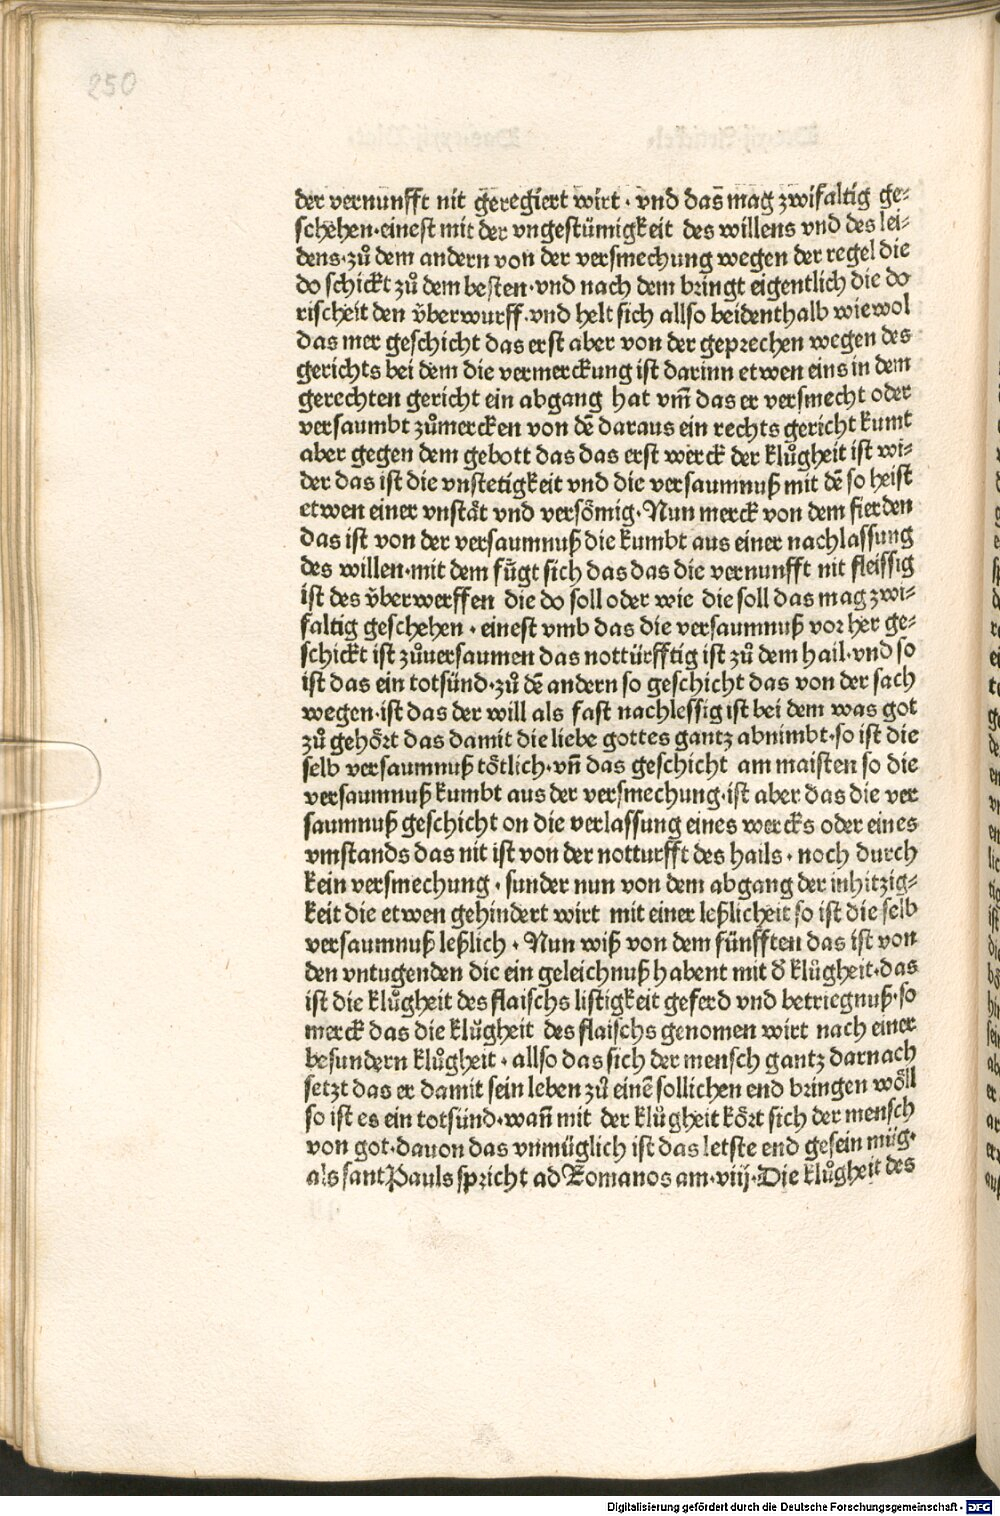 250
der vernunfft nit geregiert wirt · vnd das mag zwifaltig ge⸗
schehen·einest mit der vngestümigkeit des willens vnd des lei⸗
dens·zů dem andern von der versmechung wegen der regel die
do schickt zů dem besten·vnd nach dem bringt eigentlich die do
rischeit den v̈berwurff·vnd helt sich allso beidenthalb wiewol
das mer geschicht das erst aber von der geprechen wegen des
gerichts bei dem die vermerckung ist darinn etwen eins in dem
gerechten gericht ein abgang hat vm̄ das er versmecht oder
versaumbt zůmercken von dē daraus ein rechts gericht kumt
aber gegen dem gebott das das erst werck der klůgheit ist wi⸗
der das ist die vnstetigkeit vnd die versaumnuß mit dē so heist
etwen einer vnstät vnd versömig·Nun merck von dem fierden
das ist von der versaumnuß die kumbt aus einer nachlassung
des willen·mit dem fügt sich das das die vernunfft nit fleissig
ist des v̈berwerffen die do soll oder wie die soll das mag zwi⸗
faltig geschehen · einest vmb das die versaumnuß vor her ge⸗
schickt ist zůuersaumen das nottürfftig ist zů dem hail·vnd so
ist das ein totsünd·zů dē andern so geschicht das von der sach
wegen·ist das der will als fast nachlessig ist bei dem was got
zů gehört das damit die liebe gottes gantz abnimbt·so ist die
selb versaumnuß tötlich·vn̄ das geschicht am maisten so die
versaumnuß kumbt aus der versmechung·ist aber das die ver
saumnuß geschicht on die verlassung eines wercks oder eines
vmstands das nit ist von der notturfft des hails · noch durch
kein versmechung · sunder nun von dem abgang der inhitzig⸗
keit die etwen gehindert wirt mit einer leßlicheit so ist die selb
versaumnuß leßlich · Nun wiß von dem fünfften das ist von
den vntugenden die ein geleichnuß habent mit d̄ klügheit·das
ist die klůgheit des flaischs listigkeit geferd vnd betriegnuß·so
merck das die klügheit des flaischs genomen wirt nach einer
besundern klůgheit · allso das sich der mensch gantz darnach
setzt das er damit sein leben zů einē sollichen end bringen wöll
so ist es ein totsünd·wan̄ mit der klügheit kört sich der mensch
von got·dauon das vnmüglich ist das letste end gesein müg·
als sant Pauls spricht ad Romanos am·viij·Die klůgheit des
Digitalisierung gefördert durch die Deutsche Forschungsgemeinschaft - DFG